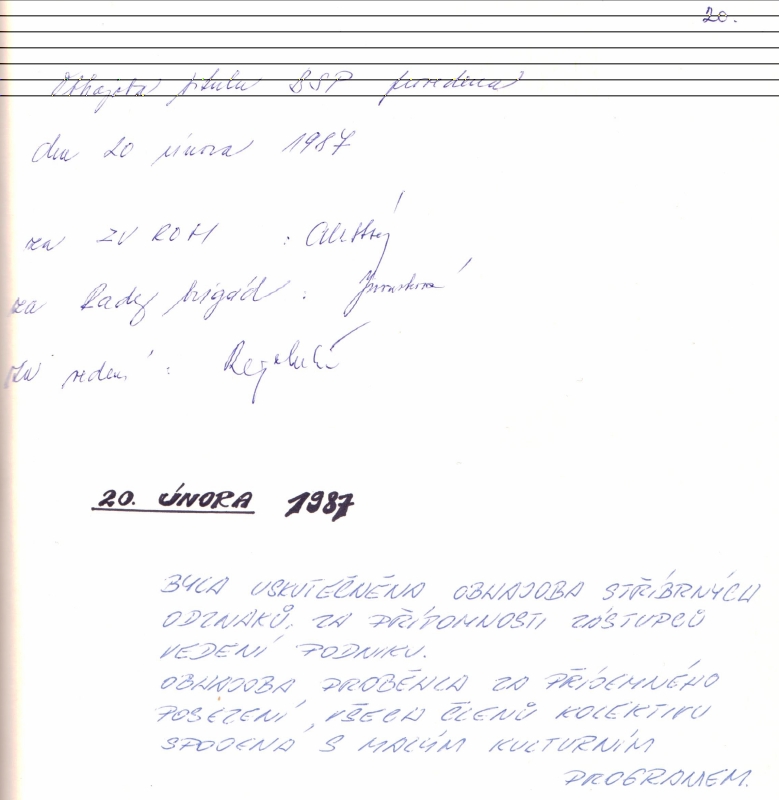 20.
Obhajoba titulu BSP provedena
dna 20 února 1987
za ZV ROH :
za Rady brigád :
za vedení :
20. ÚNORA 1987
BYLA USKUTEČNĚNA OBHAJOBA STŘÍBRNÝCH
ODZNAKŮ, ZA PŘÍTOMNOSTI ZÁSTUPCŮ
VEDENÍ PODNIKU.
OBHAJOBA PROBĚHLA ZA PŘÍJEMNÉHO
POSEZENÍ VŠECH ČLENŮ KOLEKTIVU
SPOJENÁ S MALÝM KULTURNÍM
PROGRAMEM.